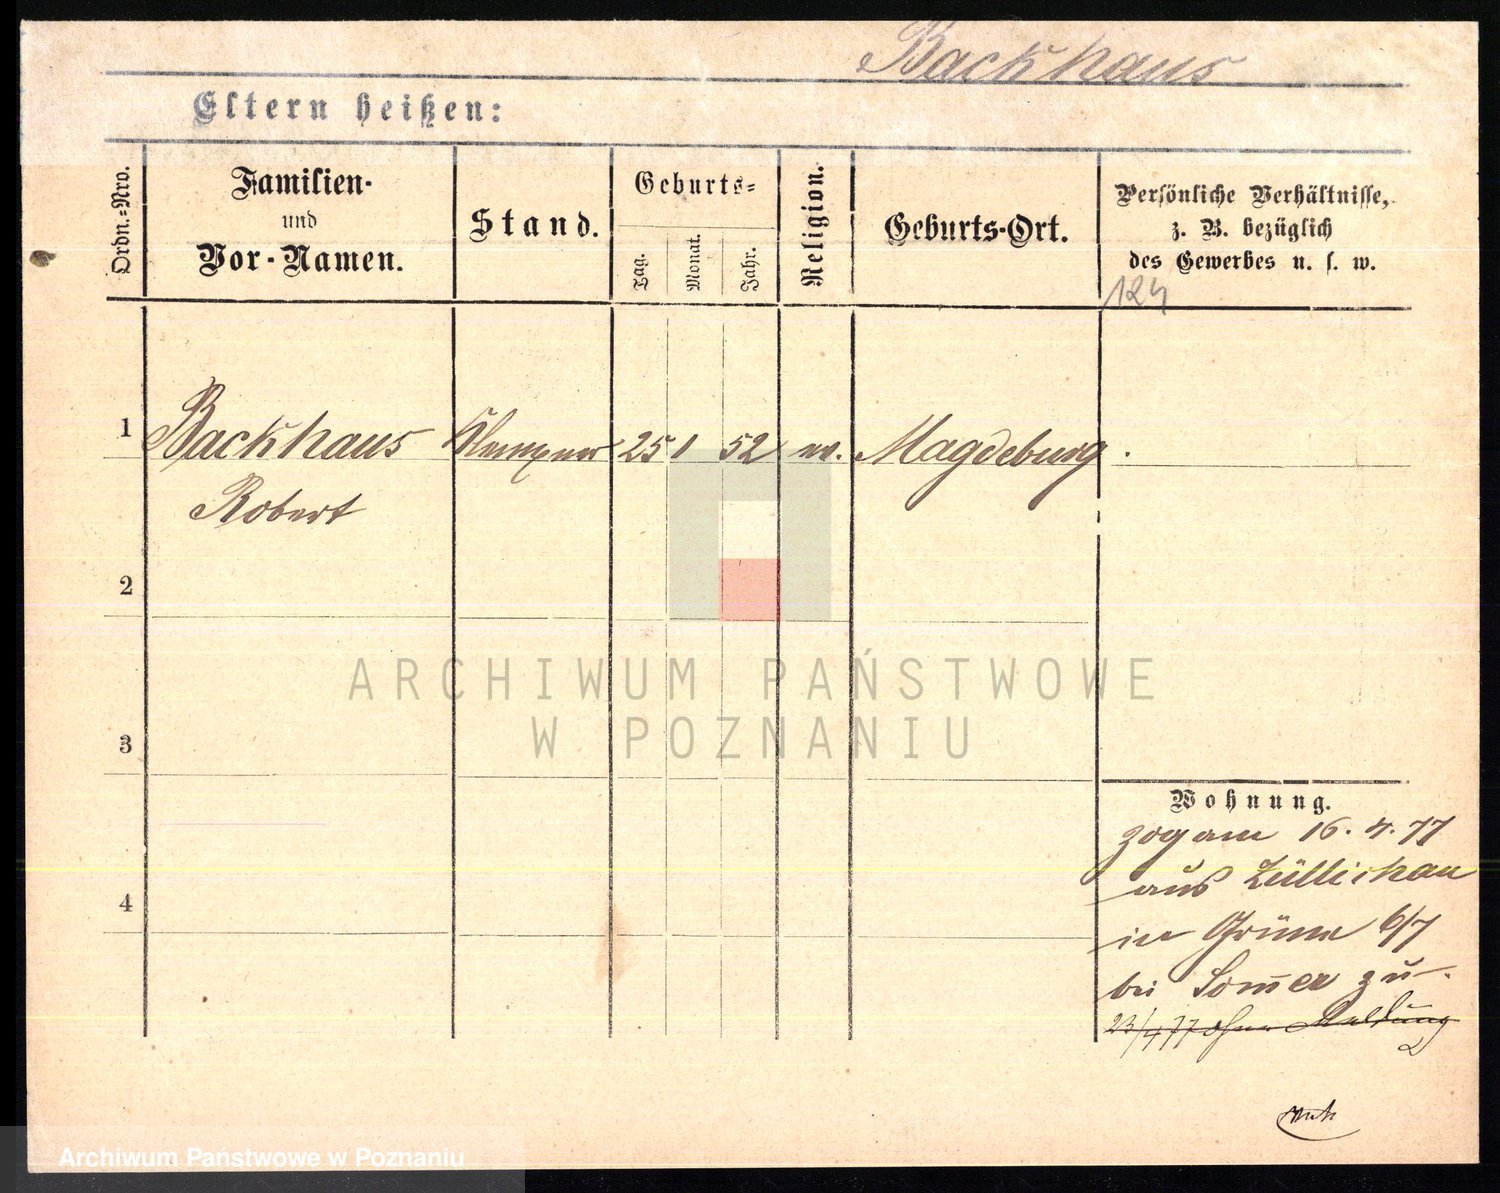 Backhaus
Eltern heißen:
Ordn.-Nro.
Familien-
und
Vor-Namen.
Stand.
Geburts-
Tag.
Monat.
Jahr.
Religion.
Geburts-Ort.
Persönliche Verhältnisse,
z. B. bezüglich
des Gewerbes u. s. w.
124
1 Backhaus Klempner 25 1 52 ev. Magdeburg.
Robert
2
3
4
ARCHIWUM PAŃSTWOWE
W POZNANIU
Wohnung.
zog am 16. 4. 77
aus Züllichau
in Grüne 6/7
bei Somer zu.
23/4 77 ohne Meldung
Archiwum Państwowe w Poznaniu